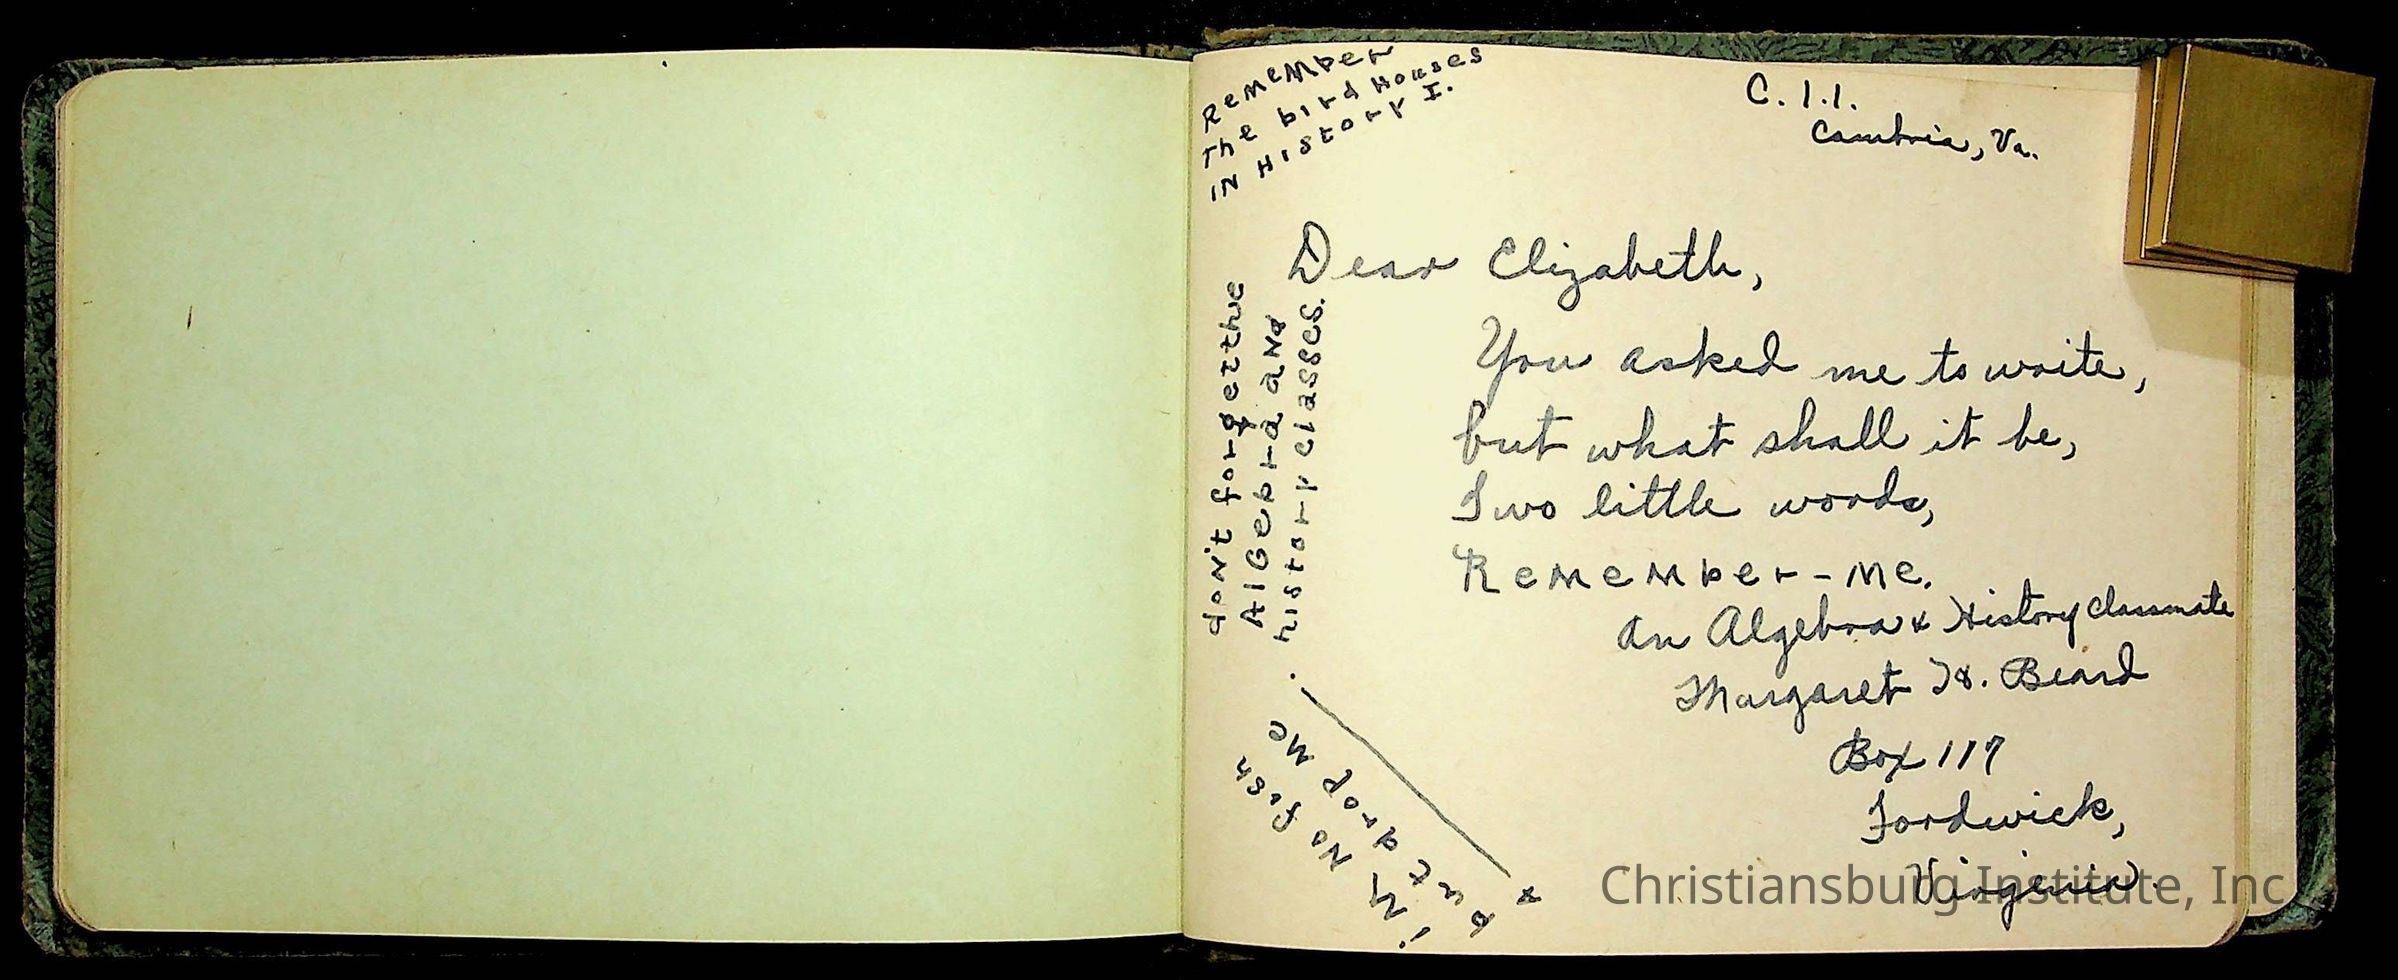 Remember
The bird Houses
IN HistorY I.
C. I.I.
Cambria, Va.
Dear Elizabeth,
You asked me to write,
but what shall it be,
Two little words,
Remember-me.
An Algebra & History Classmate
Margaret H. Beard
Box 117
Fordwick,
Virginia.
don't forget the
AlGebra and
history classes.
i'M No fish
but drop Me
Christiansburg Institute, Inc